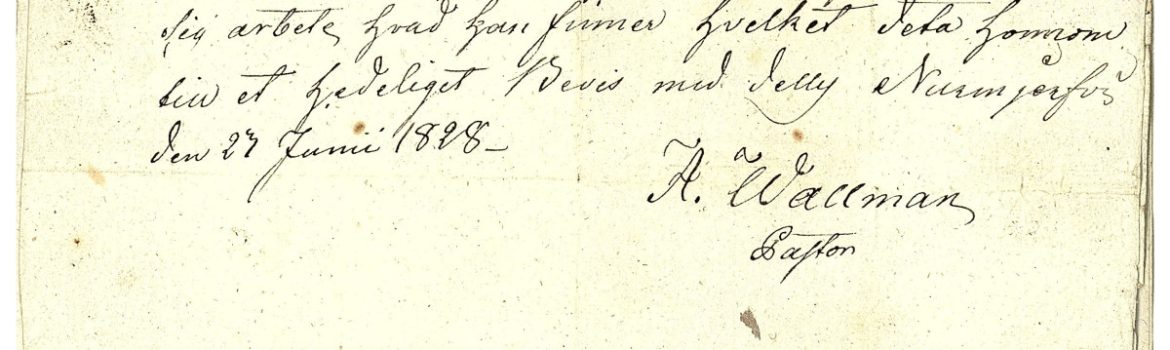 sig arbete, hvad han finner hvelket deta honnom
till et hedeliget Bevis med delly
den 27 Junii 1828–
A. Wallman
Pastor